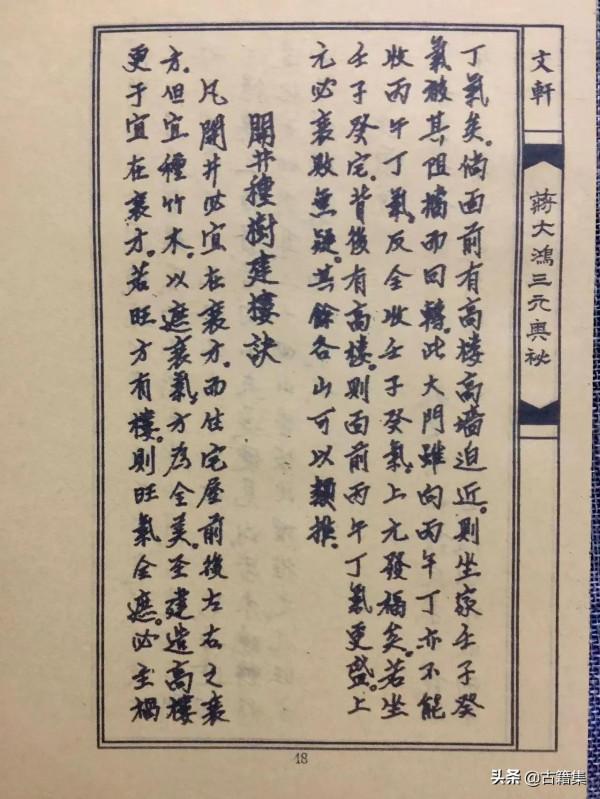 文軒
蔣大鴻三元奧祕
丁氣矣。倘面前有高楼高墙迫近。則坐家壬子癸
氣被其阻擋而回轉。此大門雖向丙午丁亦不能
收丙午丁氣。反全收壬子癸氣。上元發福矣。若坐
壬子癸宅。背後有高樓。則面前丙午丁氣更盛。上
元必衰敗無疑。其餘各山可以類推。
開井種樹建樓訣
凡開井必宜在衰方。而住宅屋前後左右之衰
方。但宜種竹木。以遮衰氣。方為全美。至建造高樓
更于宜在衰方。若旺方有樓。則旺氣全遮。必主禍
18
头条 @古籍集